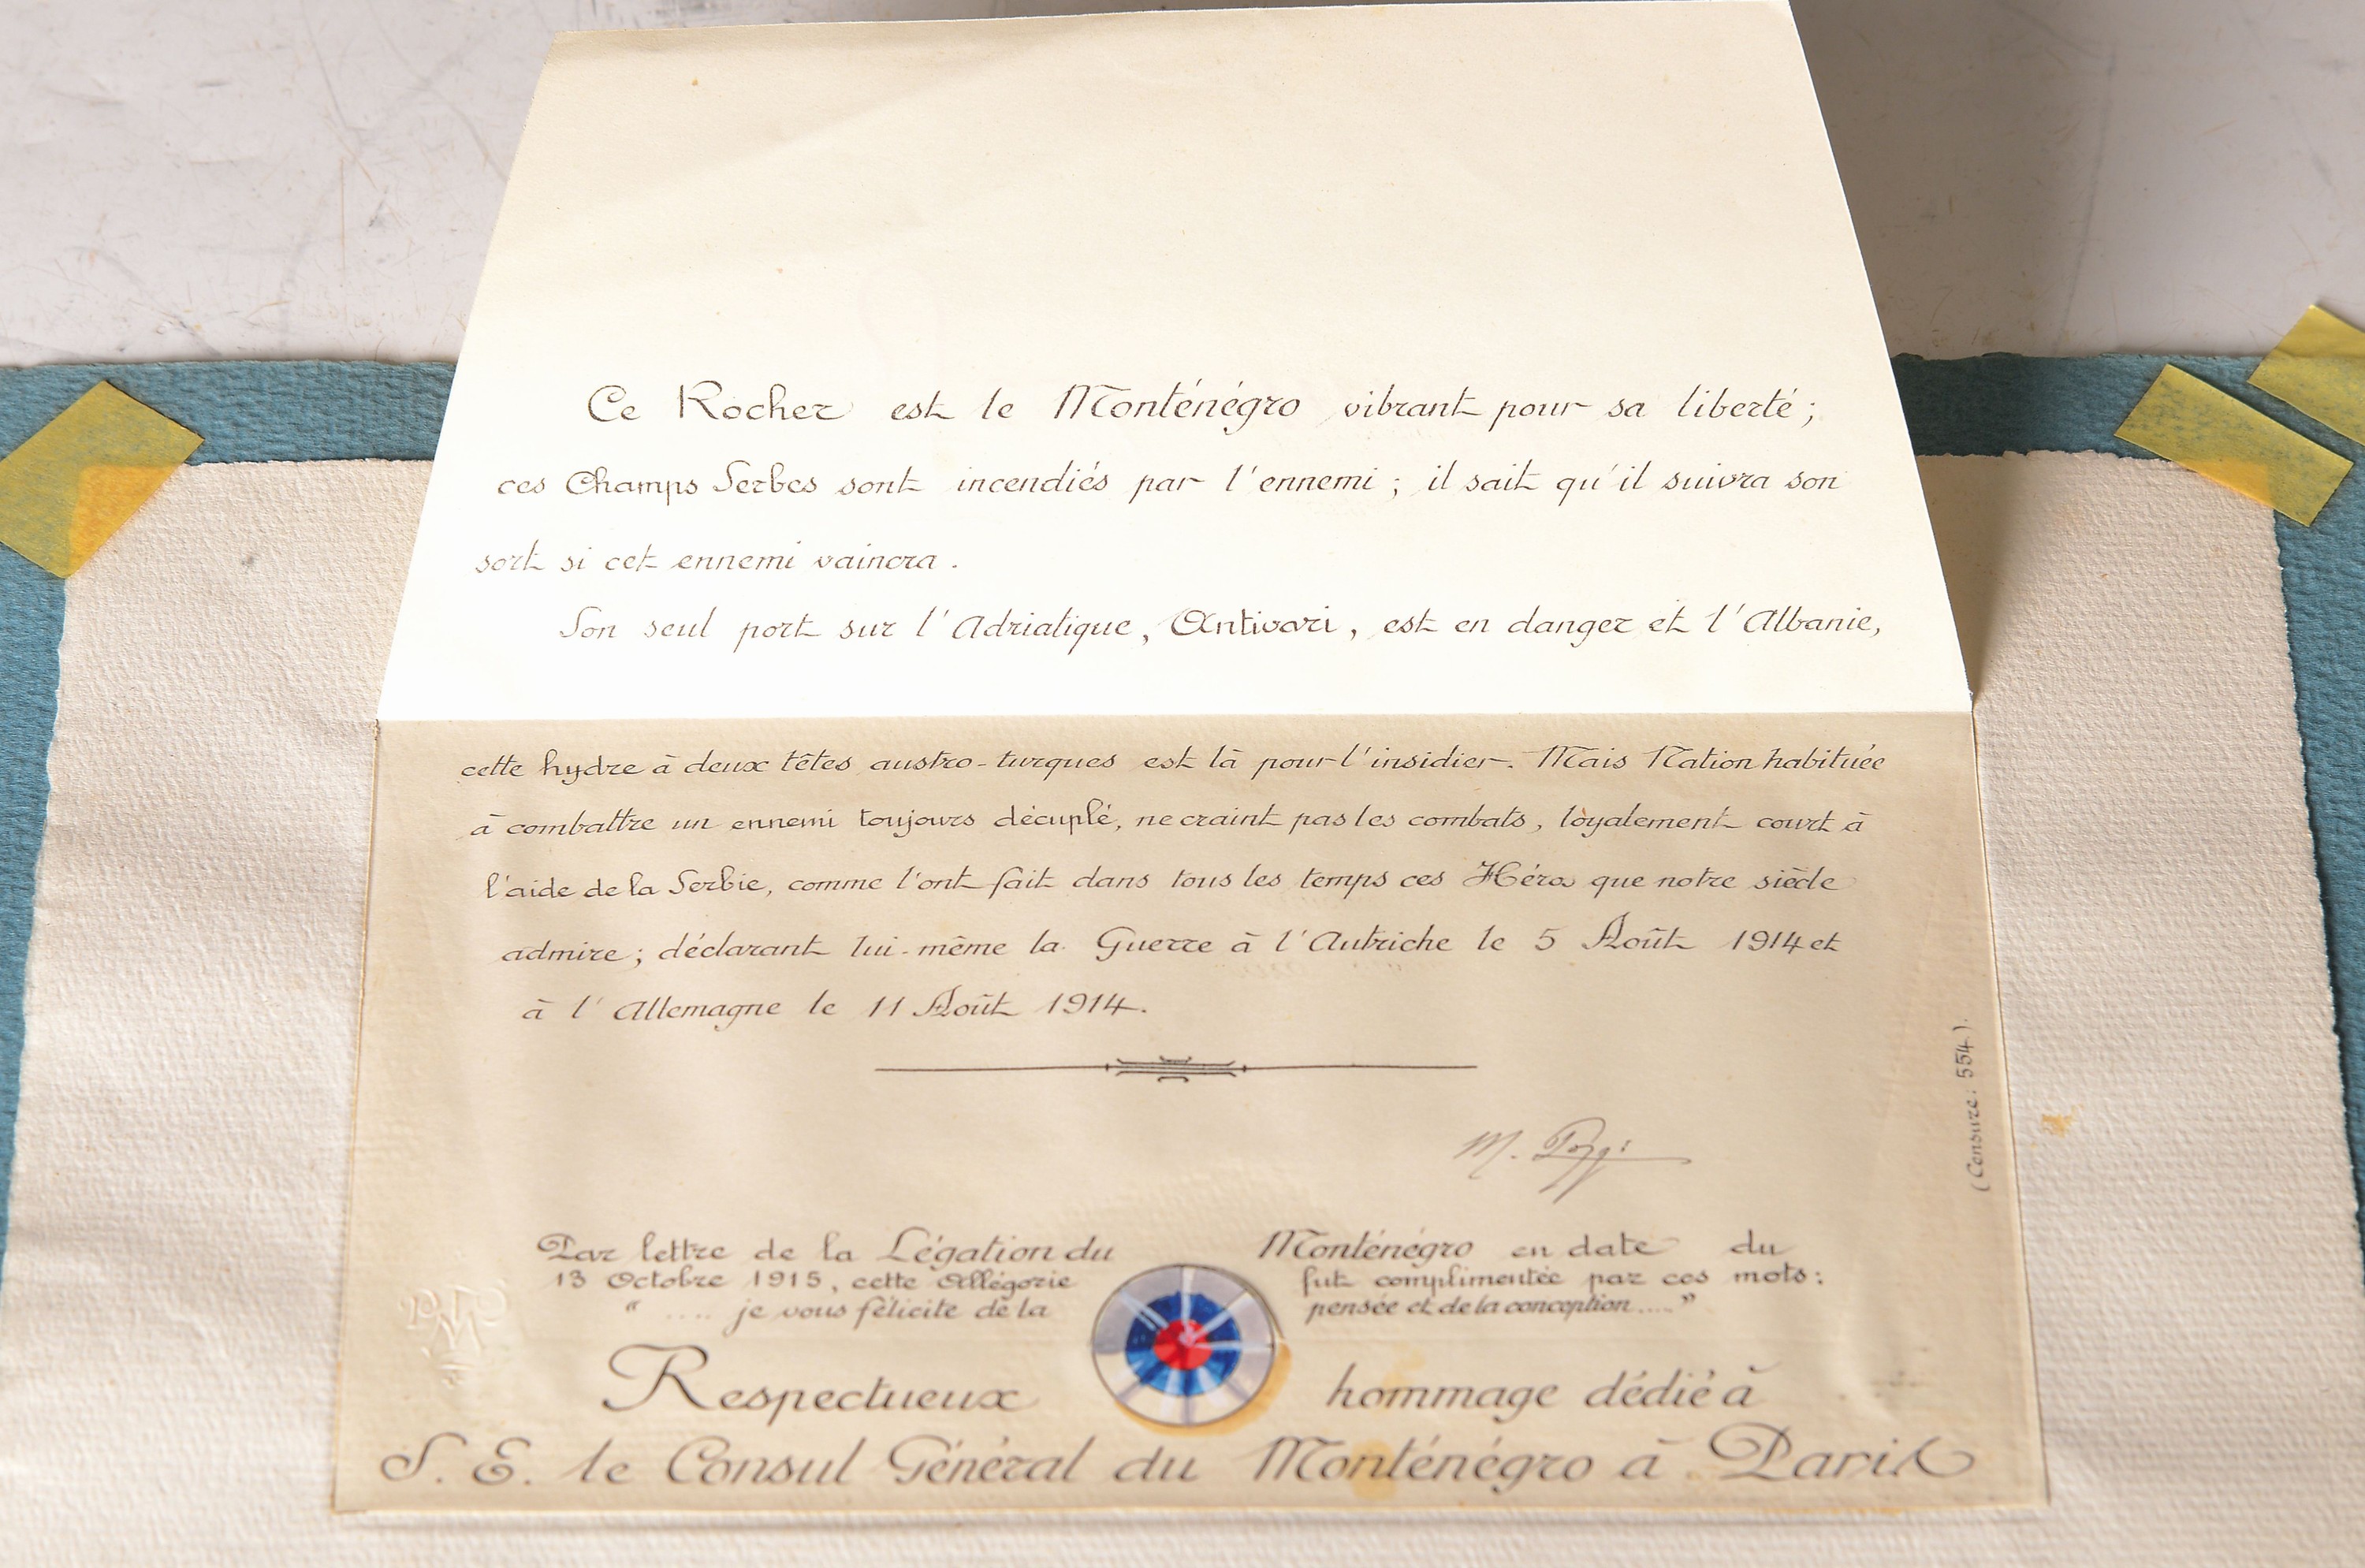 Ce Rocher est le Monténégro vibrant pour sa liberté ;
ces Champs Serbes sont incendiés par l'ennemi ; il sait qu'il suivra son
sort si cet ennemi vaincra .
Son seul port sur l'Adriatique , Antivari , est en danger et l'Albanie,
cette hydre à deux têtes austro-turques est là pour l'insidier. Mais Nation habituée
à combattre un ennemi toujours décuplé, ne craint pas les combats, loyalement court à
l'aide de la Serbie, comme l'ont fait dans tous les temps ces Héros que notre siècle
admire ; déclarant lui-même la Guerre à l'Autriche le 5 Août 1914 et
à l'Allemagne le 11 Août 1914.
M. Poggi
(Censure : 554).
Par lettre de la Légation du Monténégro en date du
13 Octobre 1915, cette Allégorie fut complimentée par ces mots :
" .... je vous félicite de la pensée et de la conception ..... "
Respectueux hommage dédié à
S. E. le Consul Général du Monténégro à Paris